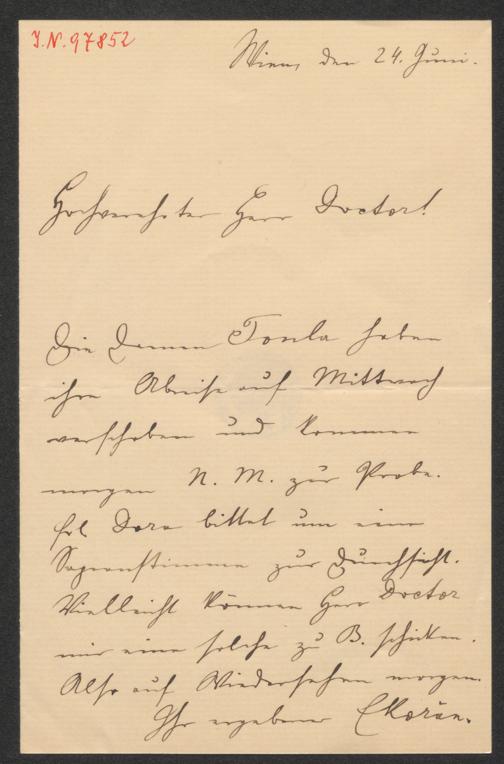 I.N. 97852
Wien, den 24. Juni.
Hochverehrter Herr Doctor!
Die Damen Tonla haben
ihre Abreise auf Mittwoch
verschoben und kommen
morgen N. M. zur Probe.
Frl Dora bittet um eine
Sopranstimme zur Durchsicht.
Vielleicht können Herr Doctor
mir eine solche zu B. schicken.
Also auf Wiedersehen morgen.
Ihr ergebener